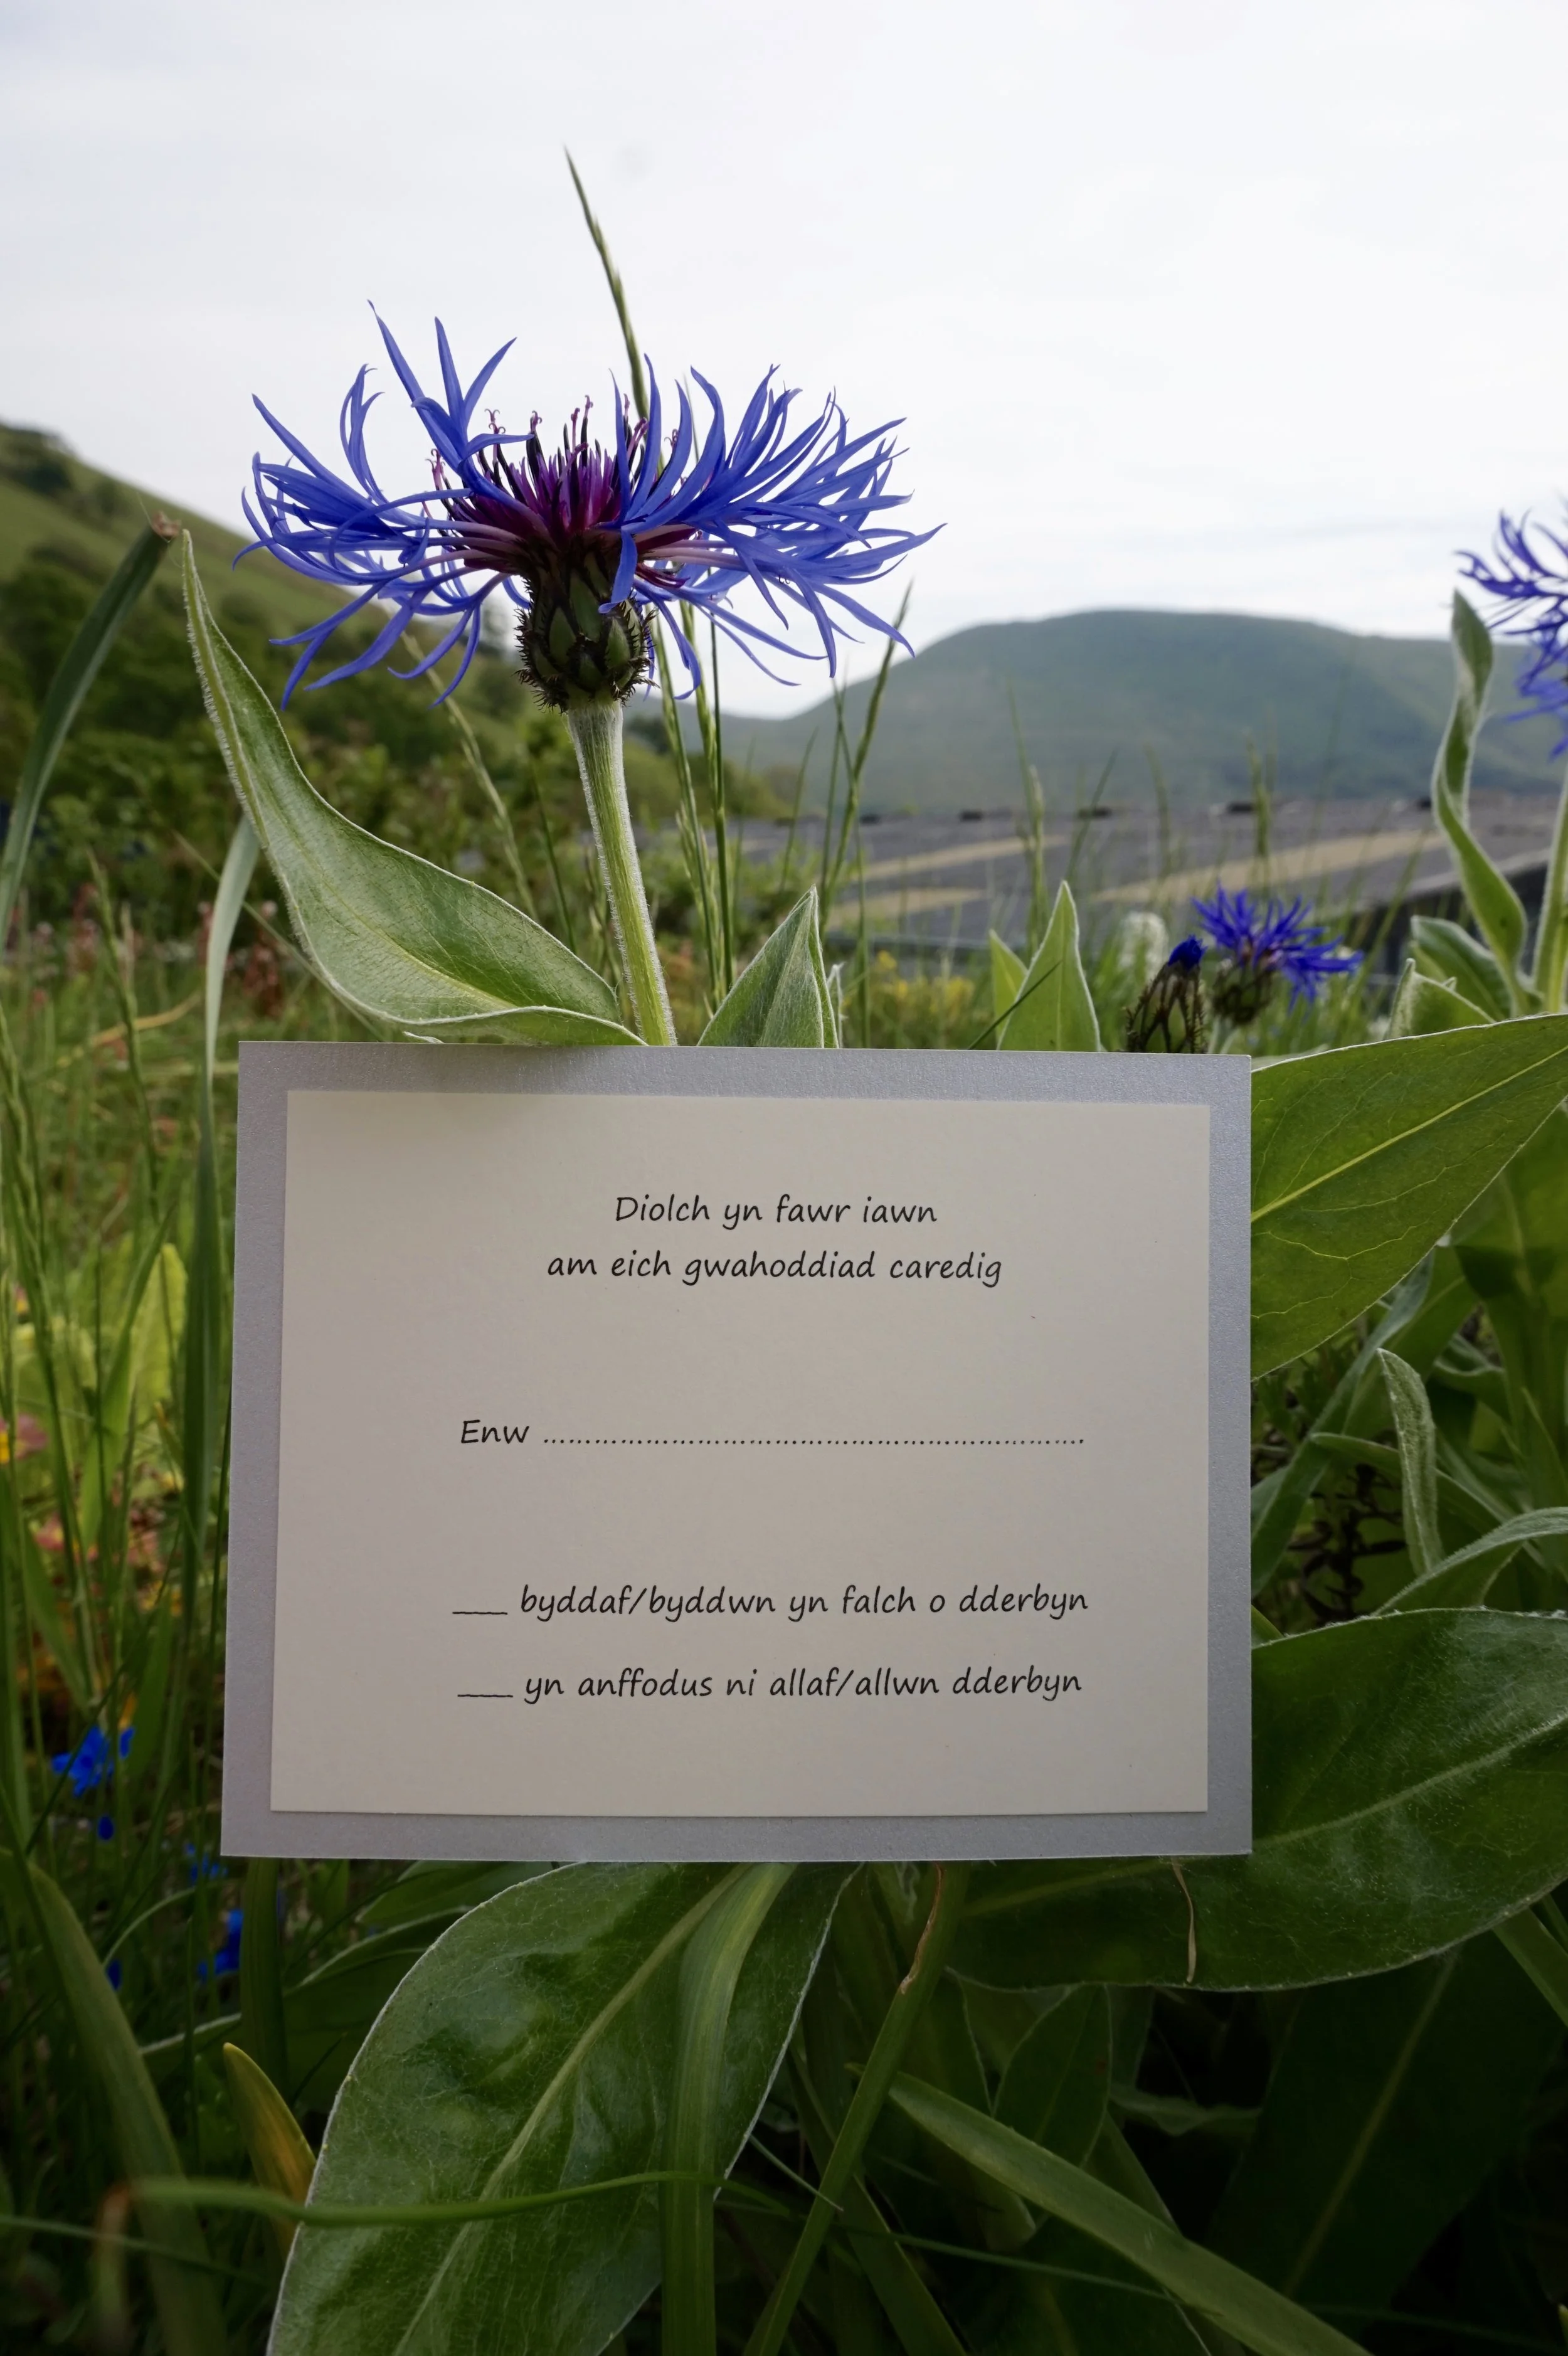 Diolch yn fawr iawn
am eich gwahoddiad caredig
Enw ...............................................................
___ byddaf/byddwn yn falch o dderbyn
___ yn anffodus ni allaf/allwn dderbyn